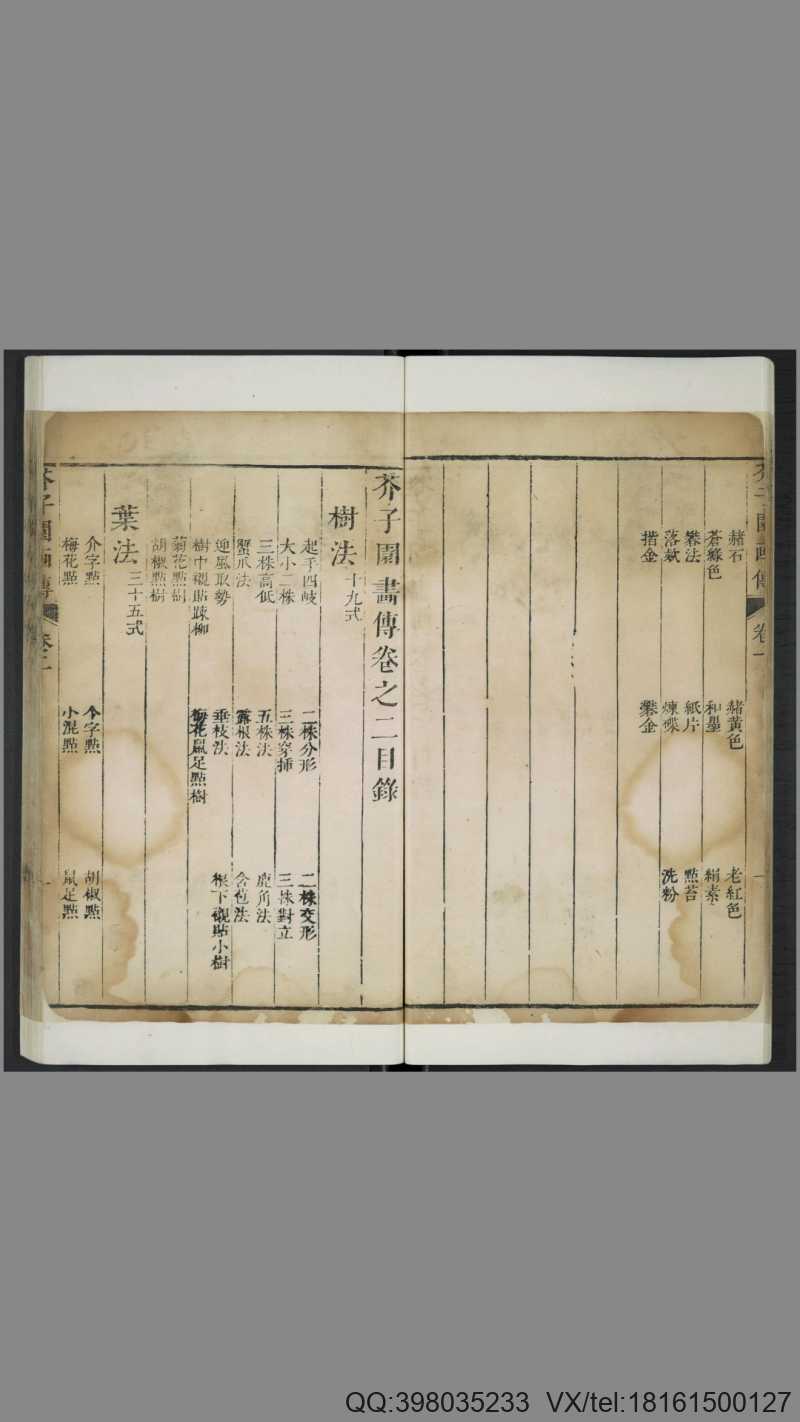 芥子園畫傳 卷一 一
赭石 赭黃色 老紅色
蒼綠色 和墨 絹素
礬法 紙片 點苔
落欵 煉碟 洗粉
揩金 礬金
芥子園畫傳卷之二目錄
樹法 十九式
起手四岐 二株分形 二株交形
大小二株 三株穿揷 三株對立
三株高低 五株法 鹿角法
蟹爪法 露根法 含苞法
迎風取勢 垂枝法 根下襯貼小樹
樹中襯貼踈柳 梅花鼠足點樹
菊花點樹
胡椒點樹
葉法 三十五式
介字點 个字點 胡椒點
梅花點 小混點 鼠足點
芥子園畫傳 卷二 一
QQ:398035233 VX/tel:18161500127